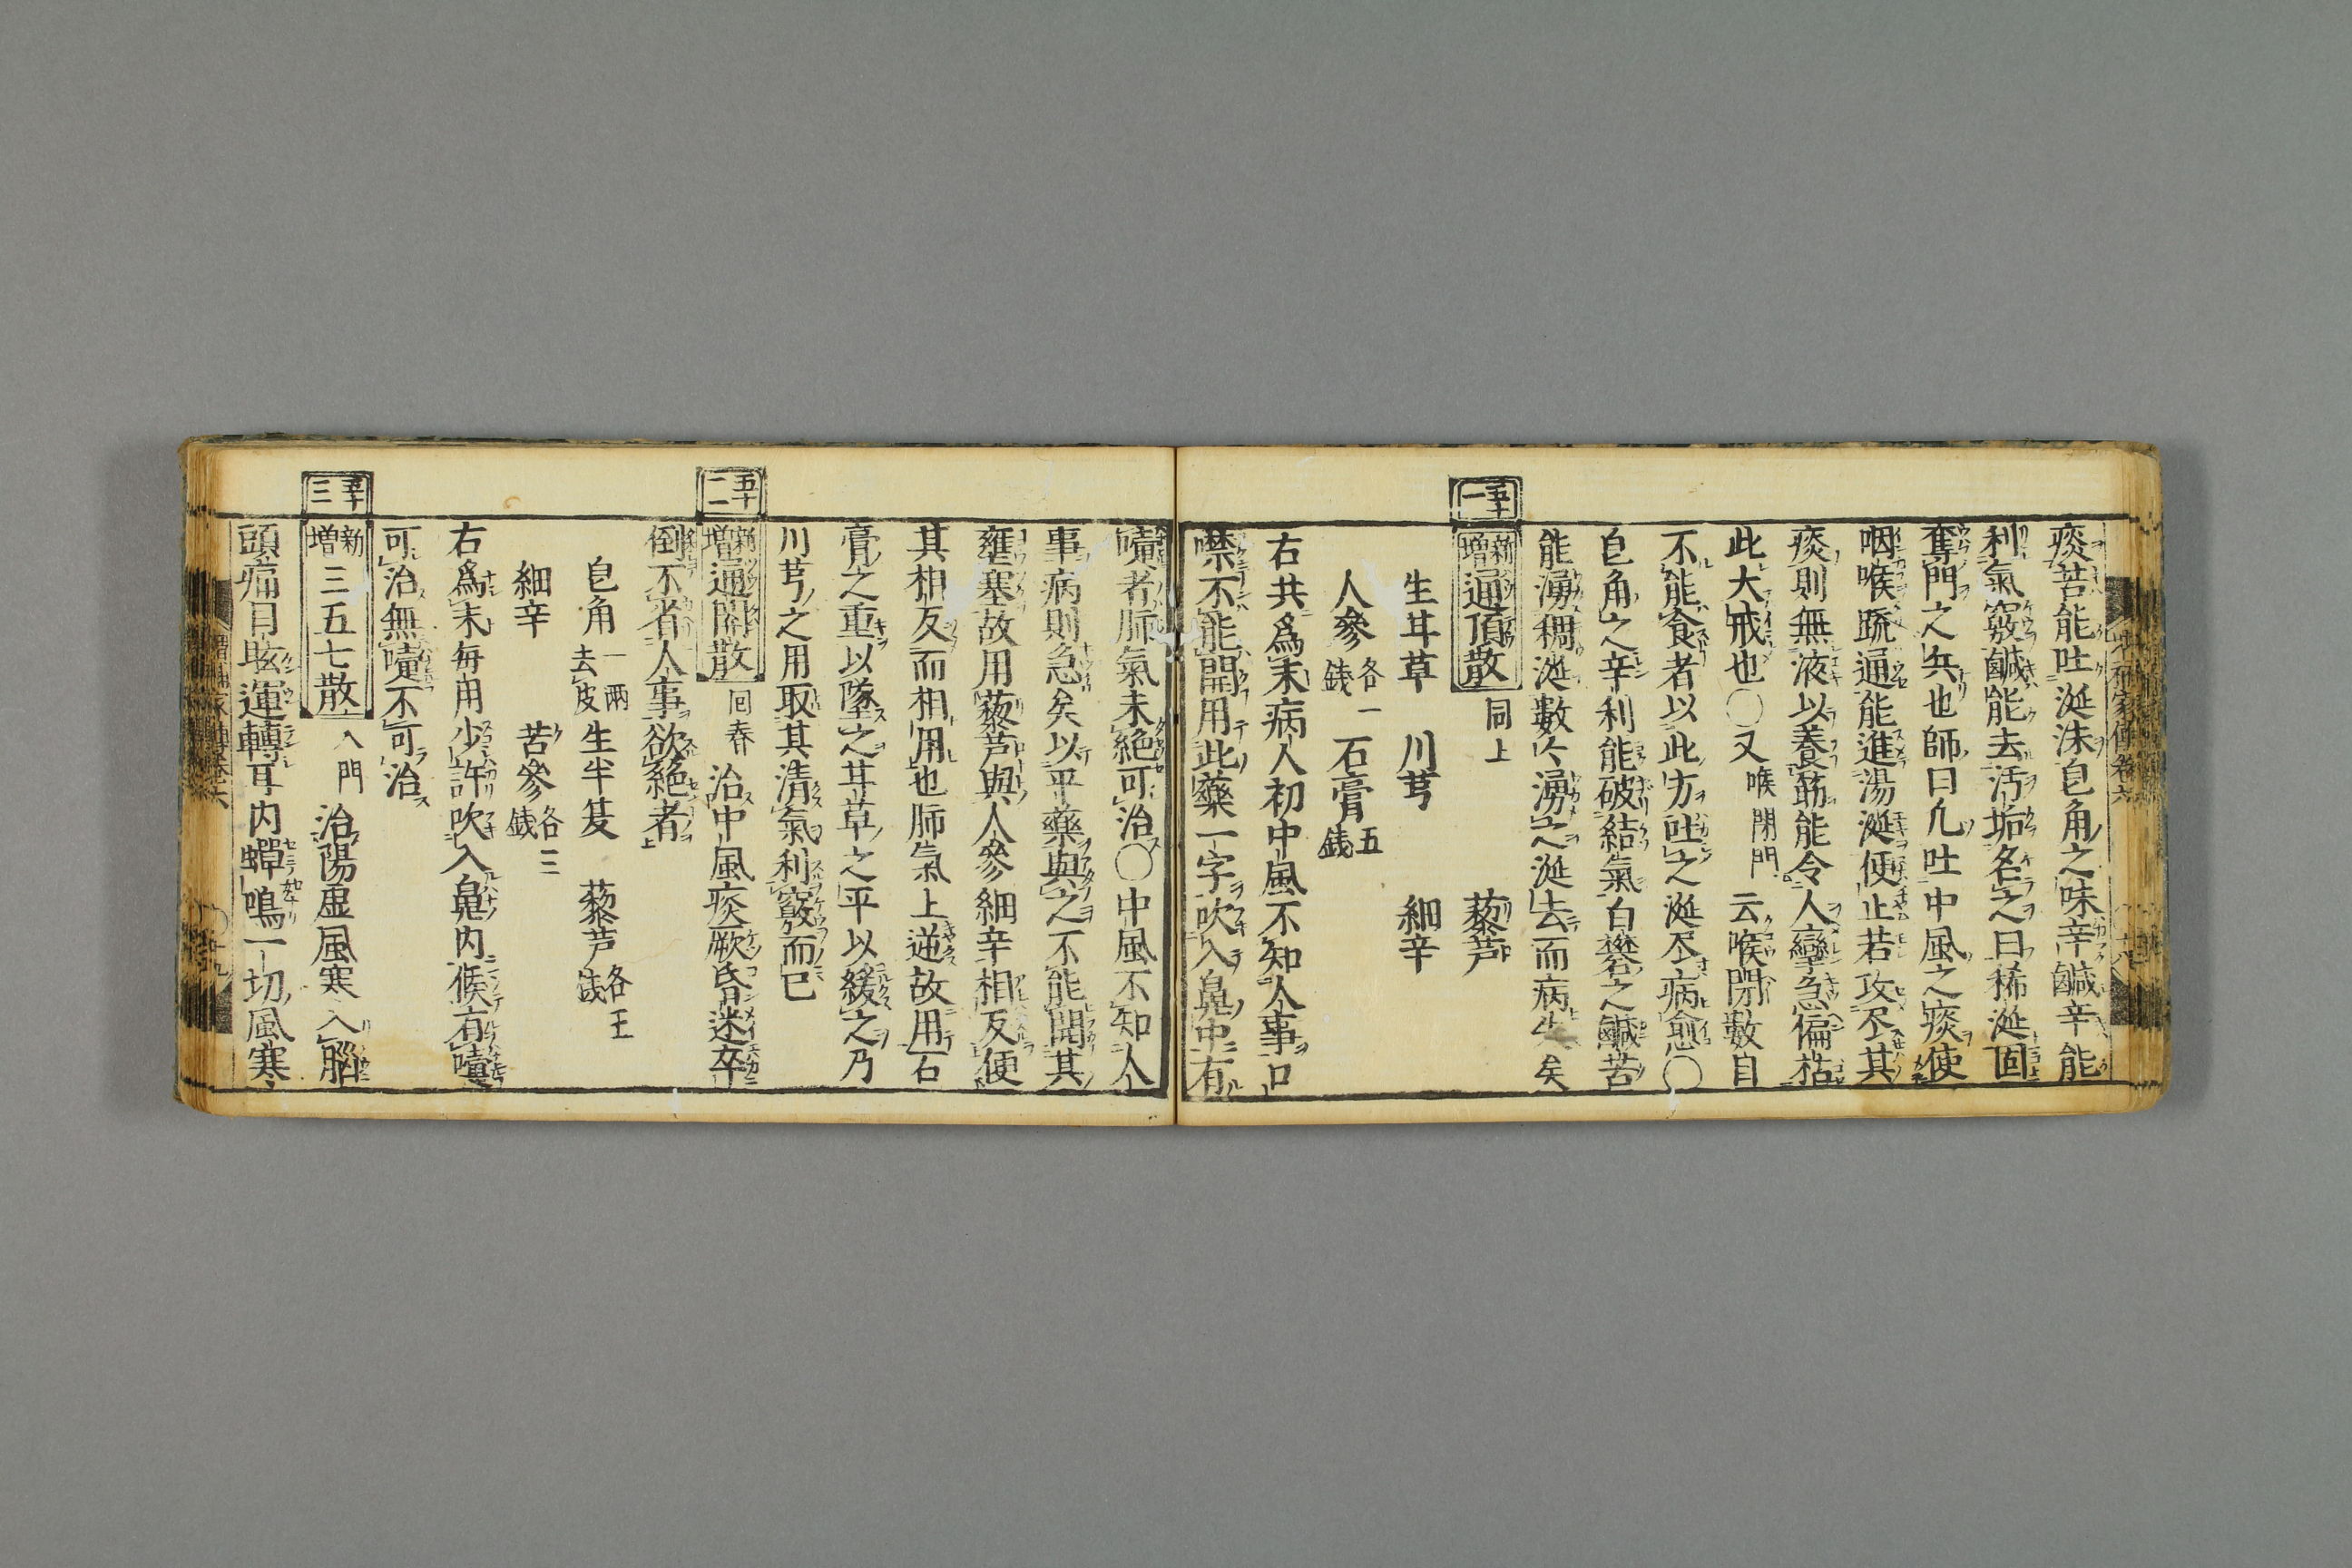 痰苦能吐涎沫皂角之味辛鹹辛能
利氣竅鹹能去汚垢名之曰稀涎固
奪門之兵也師曰凢吐中風之痰使
咽喉疏通能進湯涎便止若攻尽其
痰則無液以養筋能令人攣急偏枯
此大戒也〇又喉閉門云喉閉數自
不能食者以此方吐之涎尽病愈〇
皂角之辛利能破結氣白礬之鹹苦
能湧稠涎數々湧之涎去而病失矣
五十一
新增通頂散 同上 藜芦
生甘草 川芎 細辛
人參各一錢 石膏五錢
右共爲末病人初中風不知人事口
噤不能開用此藥一字吹入鼻中有
嚏者肺氣未絕可治〇中風不知人
事病則急矣以平藥與之不能開其
壅塞故用藜芦與人參細辛相反便
其相反而相用也肺氣上逆故用石
膏之重以墜之甘草之平以緩之乃
川芎之用取其清氣利竅而已
五十二
新增通関散 回春 治中風痰厥昏迷卒
倒不省人事欲絕者
皂角一兩去皮 生半夏 藜芦各五錢
細辛 苦參各三錢
右爲末每用少許吹入鼻内候有嚏
可治無嚏不可治
五十三
新增三五七散 入門 治陽虛風寒入腦
頭痛目眩運轉耳内蟬鳴一切風寒